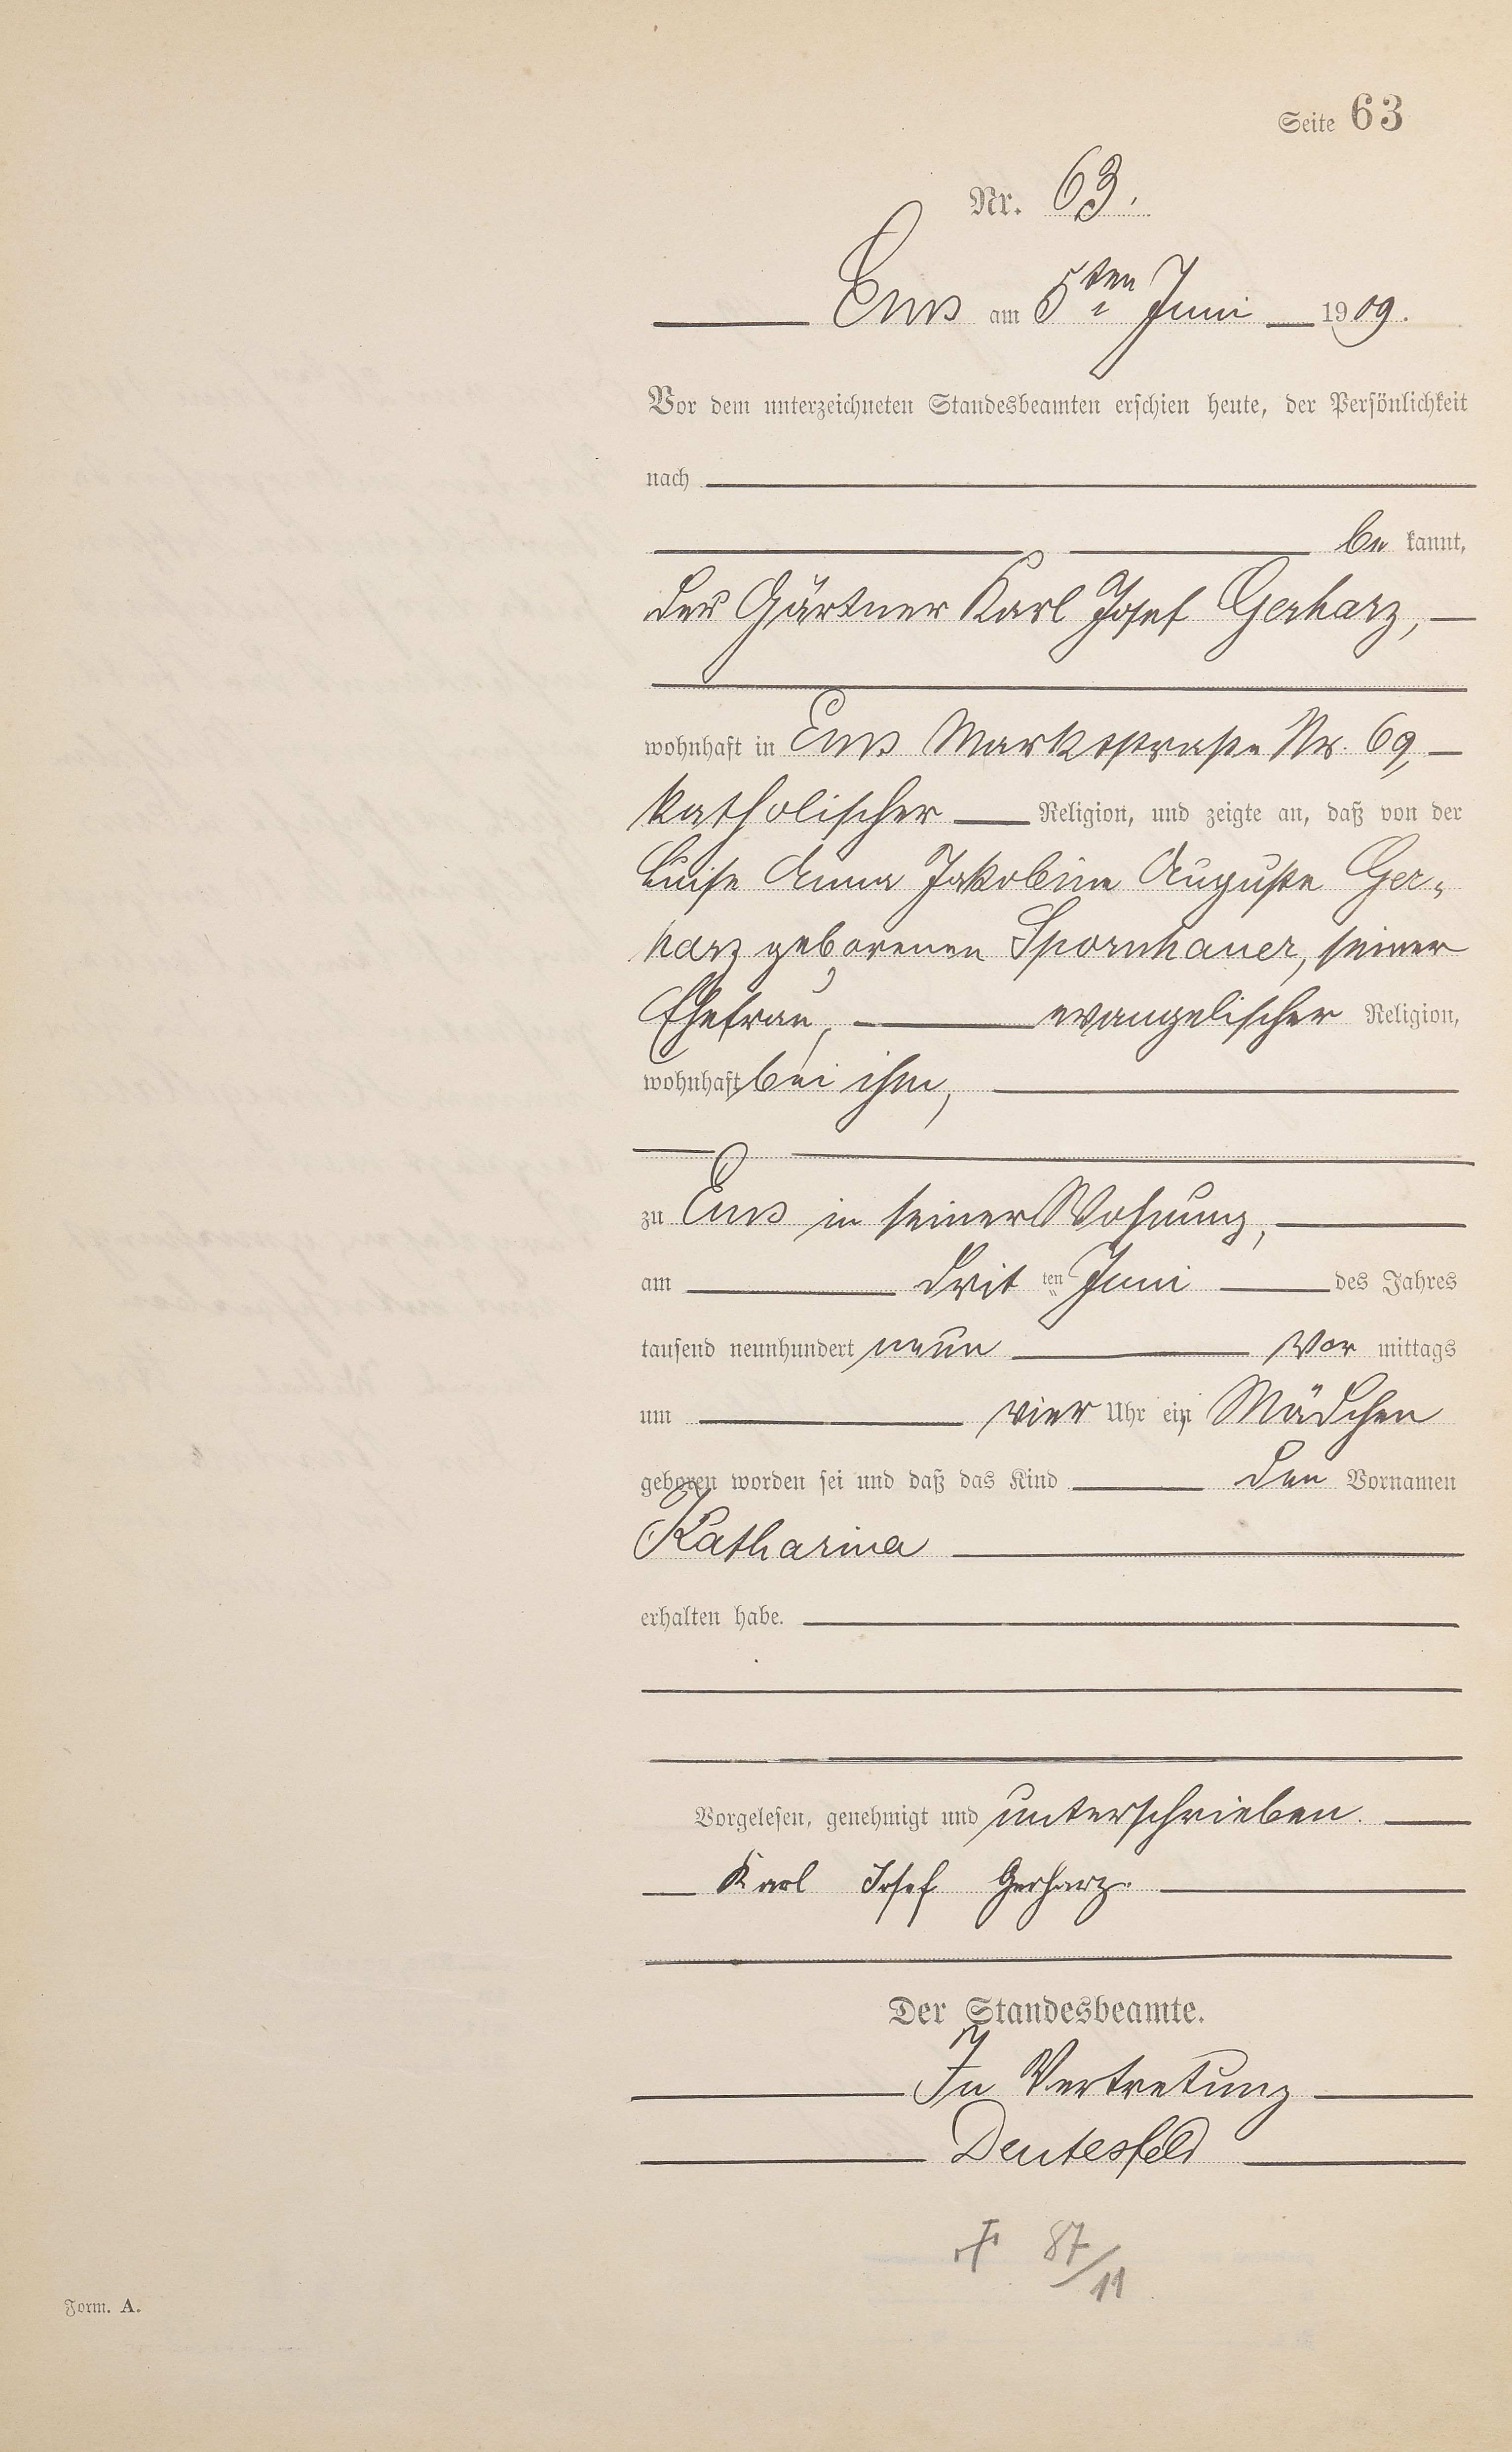 Seite 63
Nr. 63.
Ems am 5ten Juni 1909.
Vor dem unterzeichneten Standesbeamten erschien heute, der Persönlichkeit
nach
be kannt,
der Gärtner Karl Josef Gerharz,
wohnhaft in Ems Marktstraße Nr. 69,
katholischer Religion, und zeigte an, daß von der
Luise Anna Jakobine Auguste Ger-
harz geborenen Spornhauer, seiner
Ehefrau, evangelischer Religion,
wohnhaft bei ihm,
zu Ems in seiner Wohnung,
am drit ten Juni des Jahres
tausend neunhundert neun Vor mittags
um vier Uhr ein Mädchen
geboren worden sei und daß das Kind den Vornamen
Katharina
erhalten habe.
Vorgelesen, genehmigt und unterschrieben.
Karl Josef Gerharz.
Der Standesbeamte.
In Vertretung
Deutesfeld
† 87/11
Form. A.